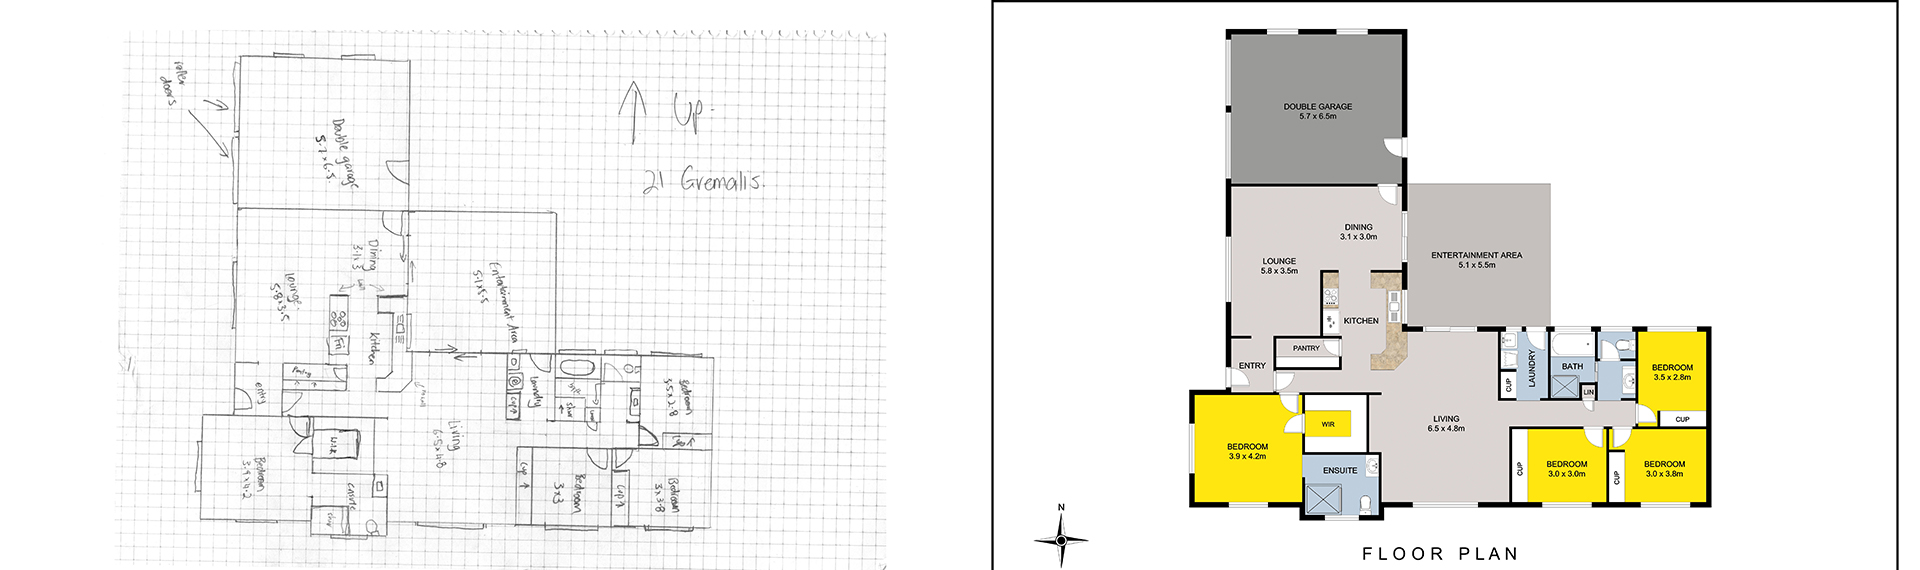 roller
doors
Double garage
5.7 x 6.5
Up
21 Gremalis.
Dining
3.1 x 3
Lounge
5.8 x 3.5
Entertainment Area
5.1 x 5.5
Kitchen
Fri
Pantry
entry
Laundry
Cup
Living
6.5 x 4.8
Bedroom
3.5 x 2.8
Cup
W.I.R
Bedroom
3.9 x 4.2
ensuite
Cup
Bedroom
3 x 3
Cup
Bedroom
3 x 3.8
DOUBLE GARAGE
5.7 x 6.5m
DINING
3.1 x 3.0m
LOUNGE
5.8 x 3.5m
ENTERTAINMENT AREA
5.1 x 5.5m
KITCHEN
PANTRY
ENTRY
LAUNDRY
CUP
BATH
LIN
BEDROOM
3.5 x 2.8m
CUP
LIVING
6.5 x 4.8m
WIR
BEDROOM
3.9 x 4.2m
ENSUITE
CUP
BEDROOM
3.0 x 3.0m
CUP
BEDROOM
3.0 x 3.8m
N
FLOOR PLAN